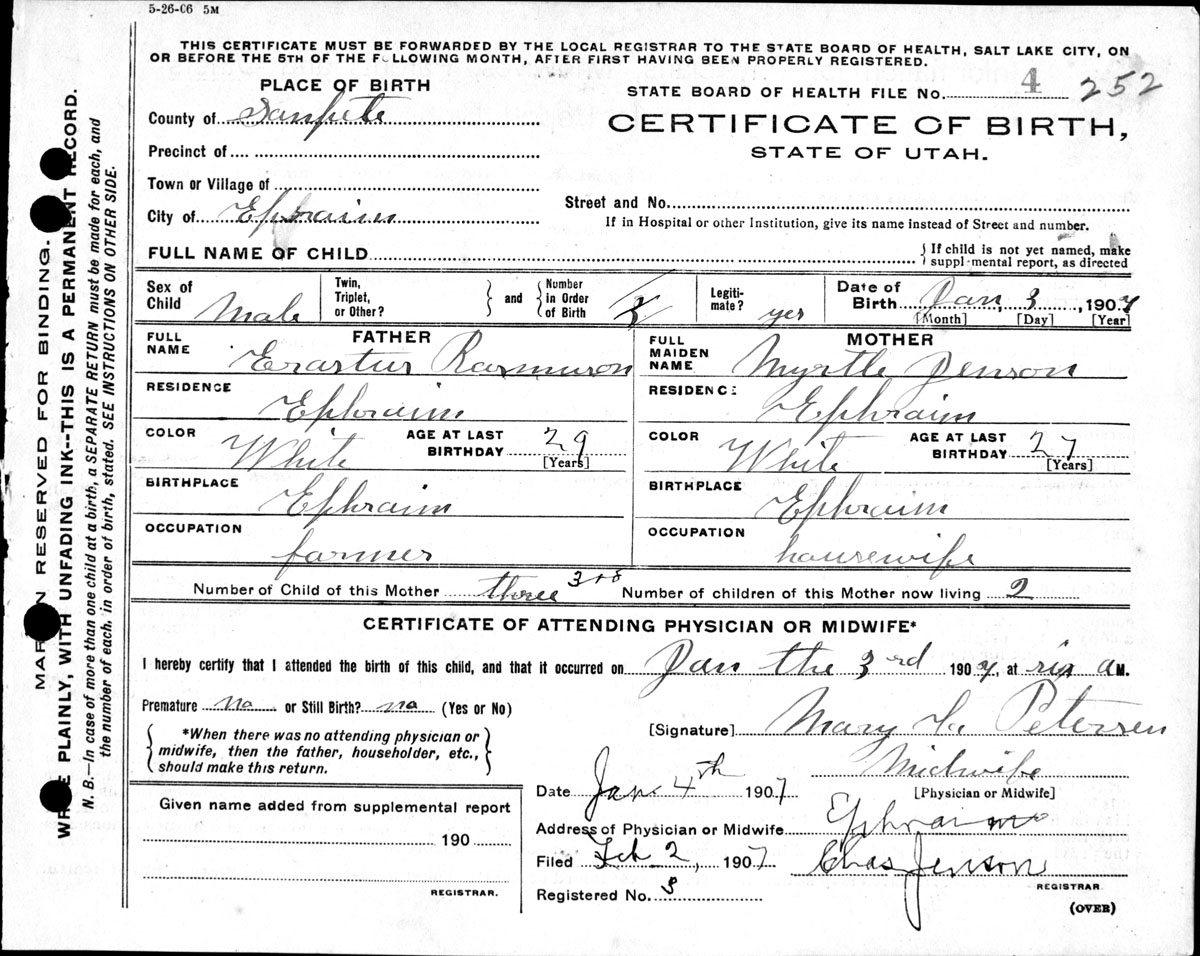 5-26-06 5M
THIS CERTIFICATE MUST BE FORWARDED BY THE LOCAL REGISTRAR TO THE STATE BOARD OF HEALTH, SALT LAKE CITY, ON
OR BEFORE THE 5TH OF THE FOLLOWING MONTH, AFTER FIRST HAVING BEEN PROPERLY REGISTERED.
PLACE OF BIRTH
STATE BOARD OF HEALTH FILE No. 4 252
County of Sanpete
CERTIFICATE OF BIRTH,
STATE OF UTAH.
Precinct of
Town or Village of
Street and No.
City of Ephraim
If in Hospital or other Institution, give its name instead of Street and number.
FULL NAME OF CHILD
{If child is not yet named, make
suppl-mental report, as directed
Sex of Child Male
Twin, Triplet, or Other?
and
Number in Order of Birth
Legiti-mate? yes
Date of Birth Jan, 3, 1907
[Month] [Day] [Year]
FATHER
FULL NAME Erastus Rasmuson
MOTHER
FULL MAIDEN NAME Myrtle Jenson
RESIDENCE Ephraim
RESIDENCE Ephraim
COLOR White AGE AT LAST BIRTHDAY 29 [Years]
COLOR White AGE AT LAST BIRTHDAY 27 [Years]
BIRTHPLACE Ephraim
BIRTHPLACE Ephraim
OCCUPATION farmer
OCCUPATION housewife
Number of Child of this Mother three 3rd Number of children of this Mother now living 2
CERTIFICATE OF ATTENDING PHYSICIAN OR MIDWIFE*
I hereby certify that I attended the birth of this child, and that it occurred on Jan the 3rd 1907, at six a M.
Premature no or Still Birth? no (Yes or No)
[Signature] Mary Petersen
*When there was no attending physician or
midwife, then the father, householder, etc.,
should make this return.
Midwife
[Physician or Midwife]
Date Jan 4th 1907
Given name added from supplemental report
190
REGISTRAR.
Address of Physician or Midwife Ephraim
Filed Feb 2, 1907 Chas Jenson
REGISTRAR
Registered No. 3
(OVER)
MARGIN RESERVED FOR BINDING.
WRITE PLAINLY, WITH UNFADING INK--THIS IS A PERMANENT RECORD.
N. B.—In case of more than one child at a birth, a SEPARATE RETURN must be made for each, and
the number of each, in order of birth, stated. SEE INSTRUCTIONS ON OTHER SIDE.